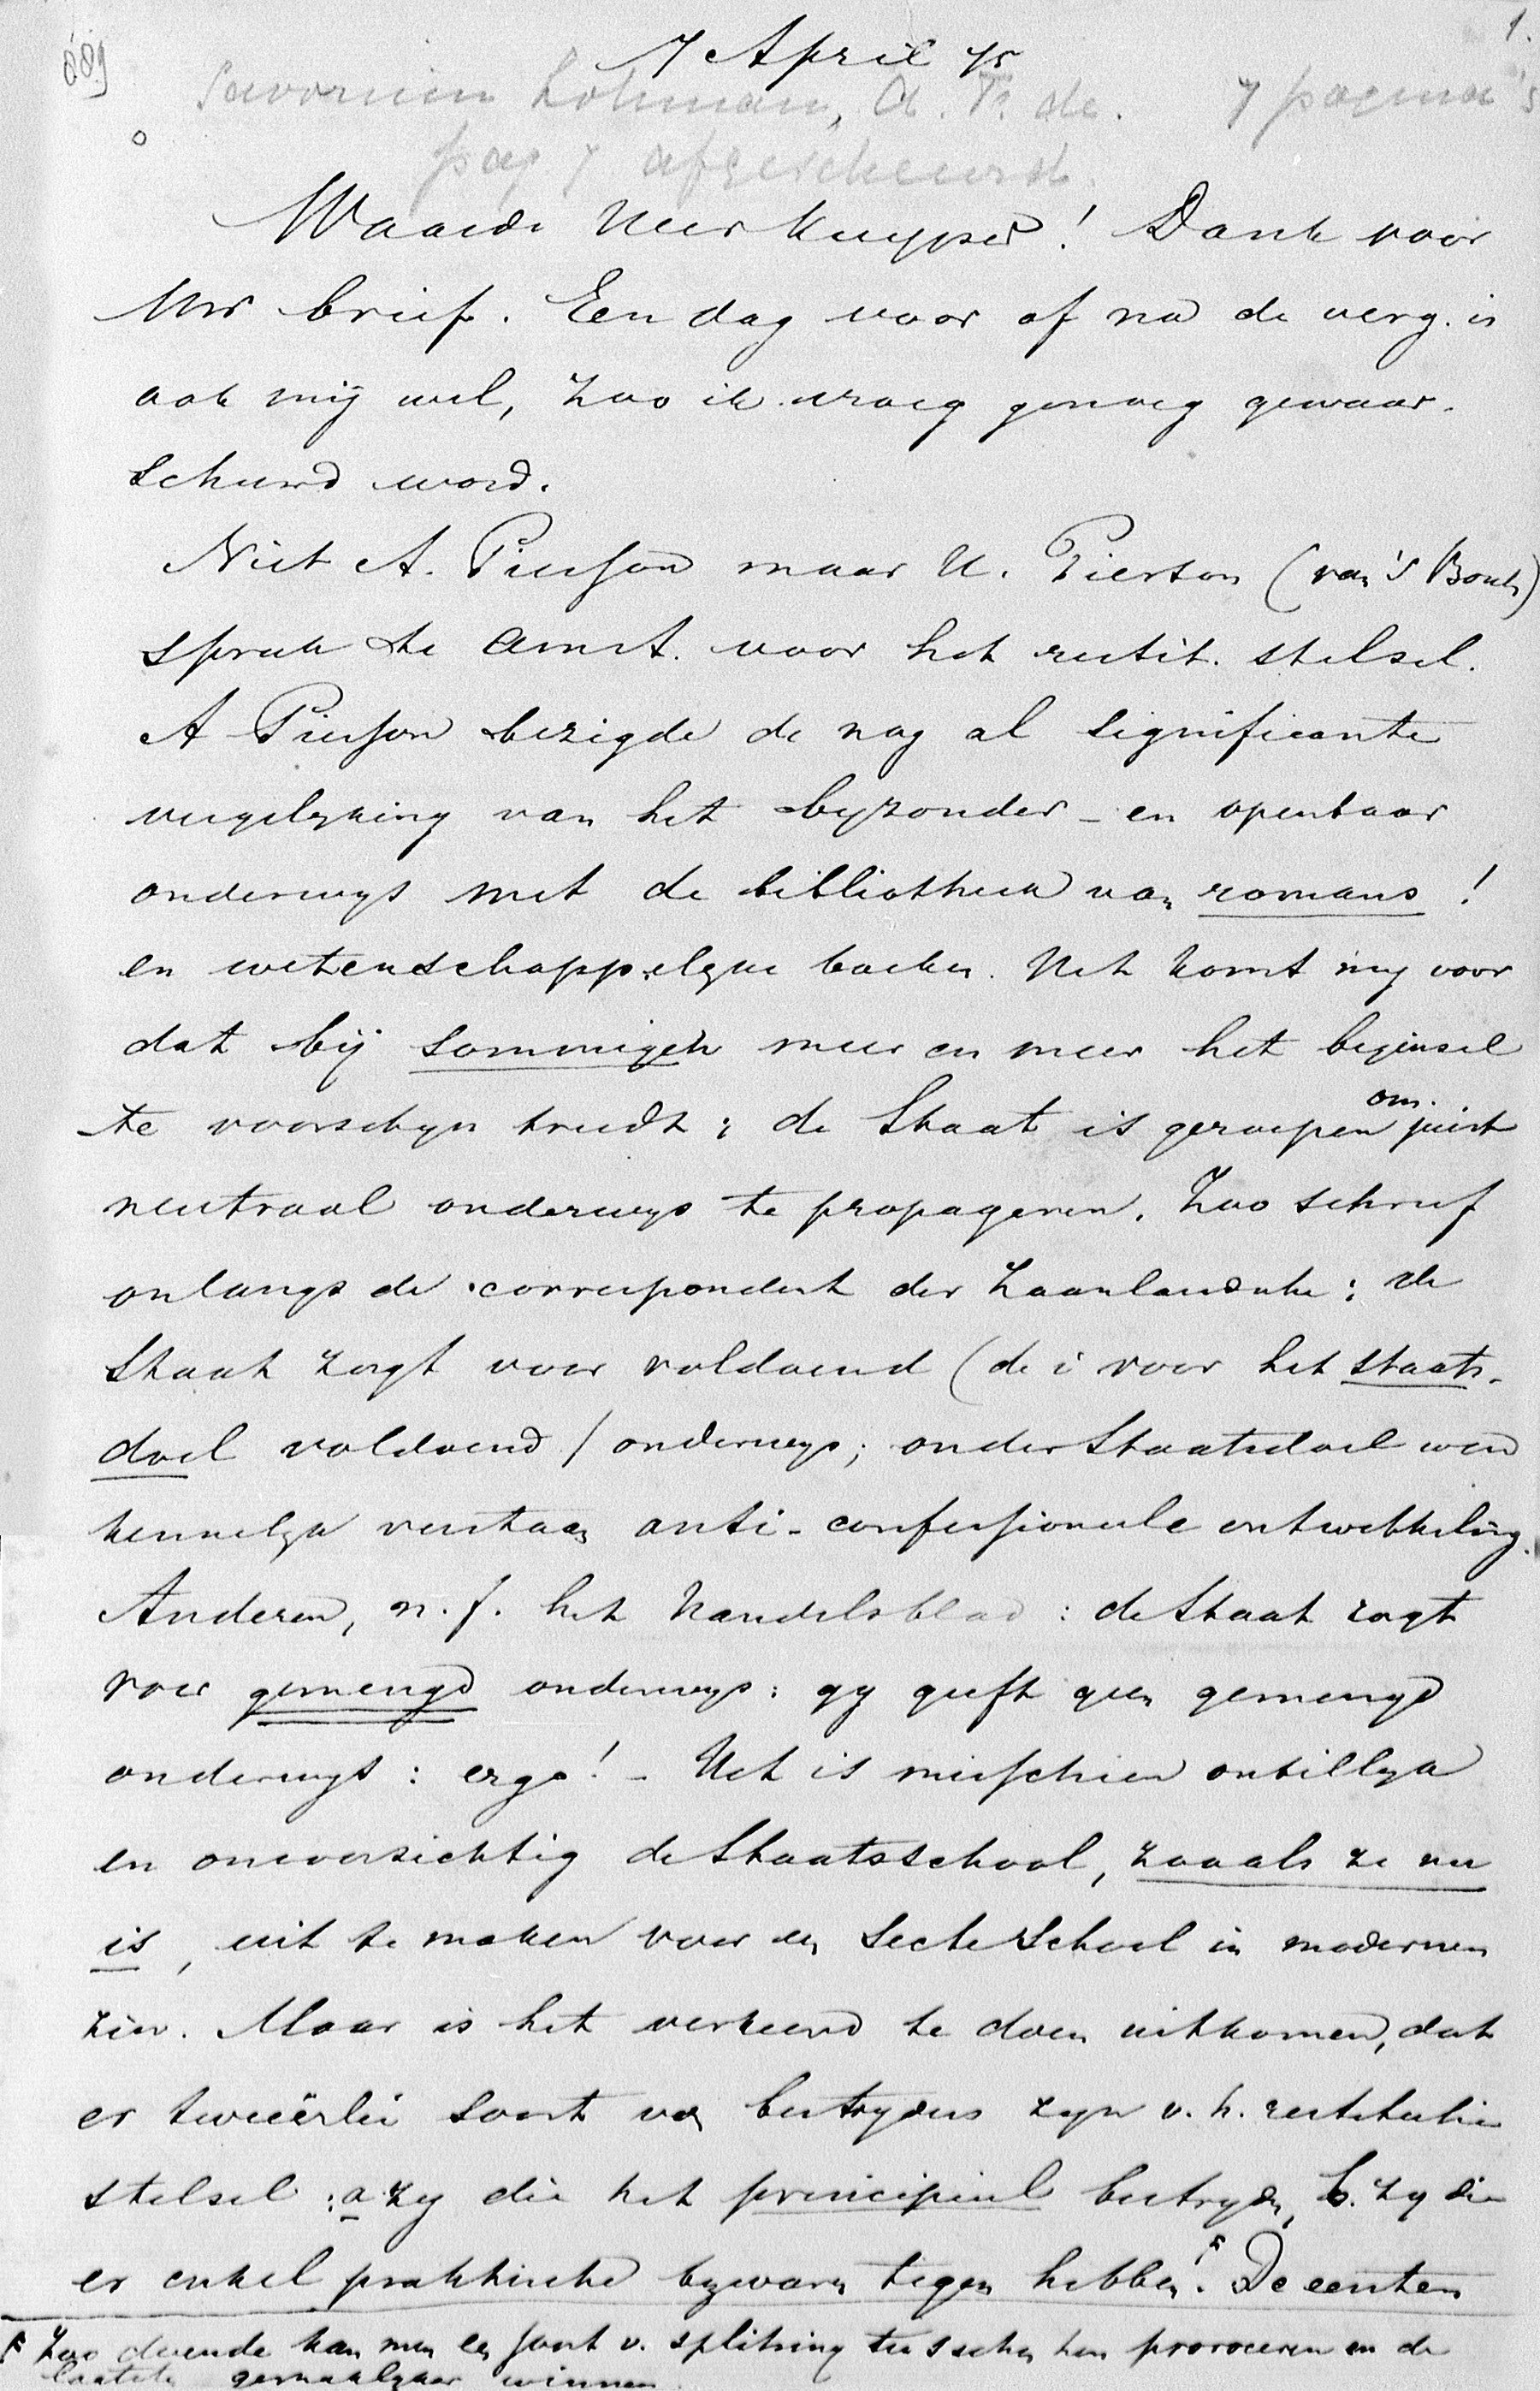 1.
089
7 April 75
Savornin Lohman, A. F. de. 7 pagina's
pag 7 afgescheurd.
Waarde Heer Kuyper! Dank voor
Uw brief. Een dag voor of na de verg. is
ook mij wel, zoo ik vroeg genoeg gewaar-
schuwd word.
Niet A. Pierson maar H. Pierson (van 's Bosch)
sprak te Amst. voor het restit. stelsel.
A Pierson bezigde de nog al significante
vergelyking van het byzonder- en openbaar
onderwys met de bibliotheek van romans!
en wetenschappelyke boeken. Het komt my voor
dat bij sommigen meer en meer het beginsel
te voorschyn treedt: de Staat is geroepen om juist
neutraal onderwys te propageren. Zoo schreef
onlangs de correspondent der Zaanlandsche: de
Staat zorgt voor voldoend (d. i voor het staats-
doel voldoend) onderwys; onder Staatsdoel werd
kennelyk verstaan anti-confessioneele ontwikkeling.
Anderen, n.f. het Handelsblad: de Staat zorgt
voor gemengd onderwys: gy geeft geen gemengd
onderwys: ergo! - Het is misschien onbillyk
en onvoorzichtig de Staatsschool, zooals ze nu
is, uit te maken voor een Secteschool in modernen
zin. Maar is het verkeerd te doen uitkomen, dat
er tweeërlei soort van bestryders zyn v. h. restitutie
stelsel: a zy die het principieel bestryden, b. zy die
er enkel praktische bezwaren tegen hebben. De eersten
Zoo doende kan men een soort v. splitsing tusschen hen provoceren en de
laatste gemaklyker winnen.